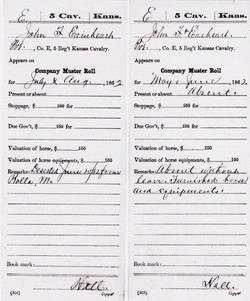 E | 5 Cav. | Kans.
John L Earnheart
Pvt., Co. E, 5 Reg't Kansas Cavalry.
Appears on
Company Muster Roll
for July & Aug, 1862
Present or absent
Stoppage, $ 100 for
Due Gov't, $ 100 for
Valuation of horse, $ 100
Valuation of horse equipments, $ 100
Remarks: Deserted June from
Rolla, Mo
Book mark:
Hall
(358) Copyist.
E | 5 Cav. | Kans.
John L Earheart
Pvt., Co. E, 5 Reg't Kansas Cavalry.
Appears on
Company Muster Roll
for May & June, 1862.
Present or absent Absent.
Stoppage, $ 100 for
Due Gov't, $ 100 for
Valuation of horse, $ 100
Valuation of horse equipments, $ 100
Remarks: Absent without
leave. Furnished horse
and equipments.
Book mark:
Hall.
(358) Copyist.